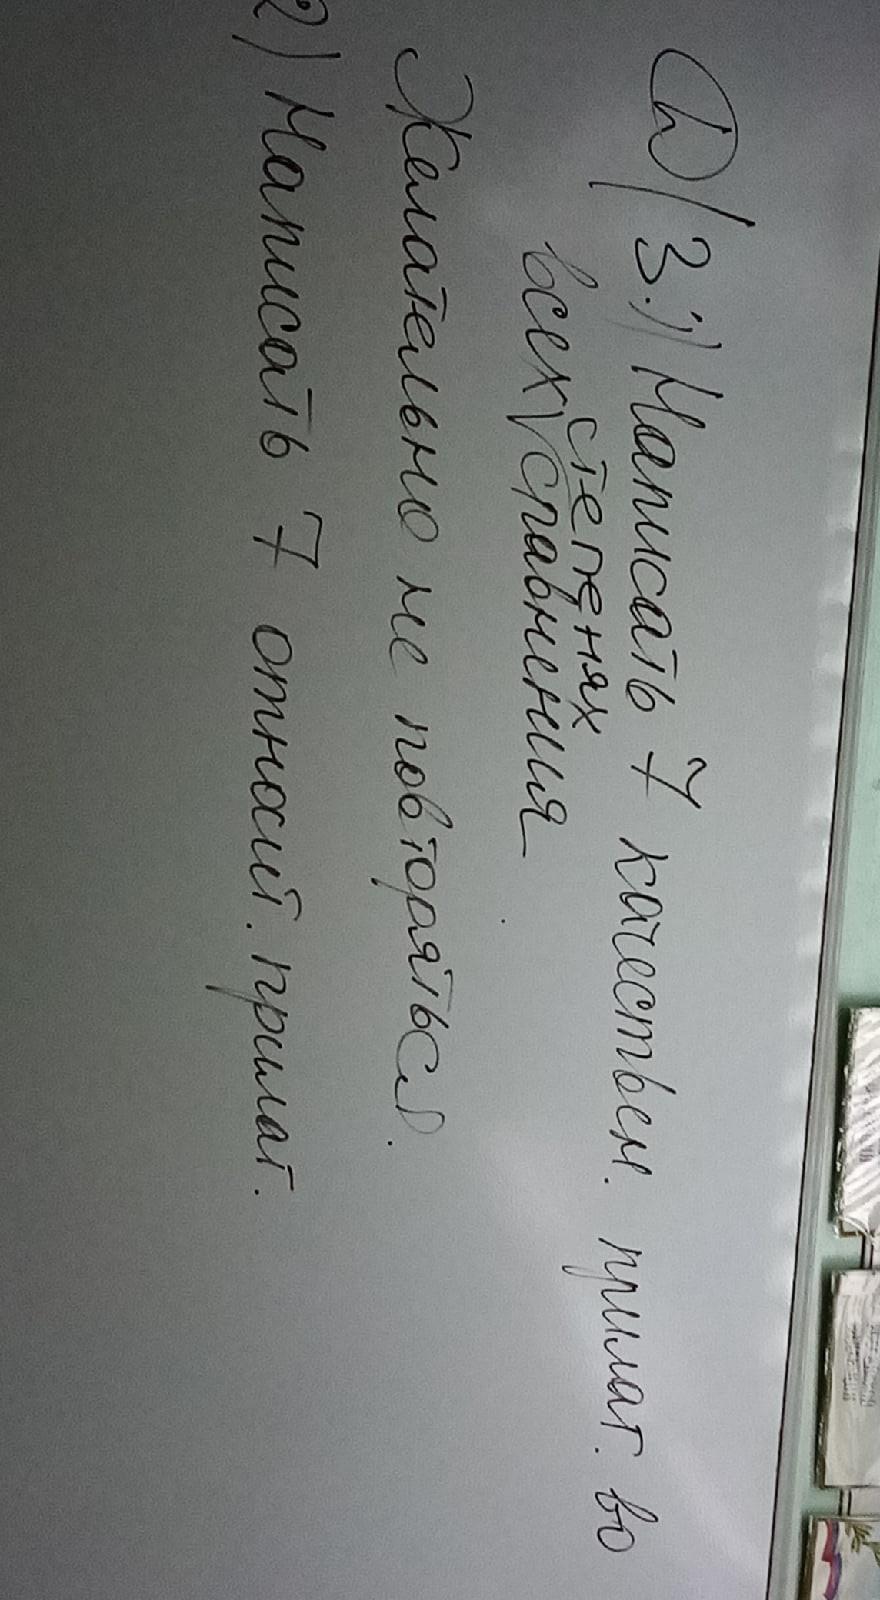 Д/З: 1) Написать 7 качествен. прилаг. во
всех степенях сравнения
Желательно не повторяться.
2) Написать 7 относит. прилаг.